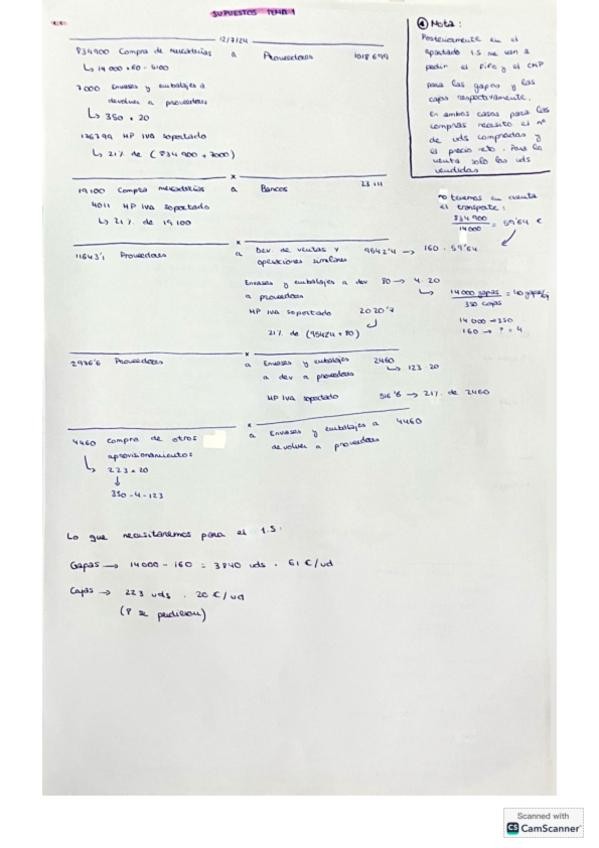 SUPUESTOS TEMA 1
12/7/24
834900 Compra de mercaderías a Proveedores 1018699
↳ 14000 × 60 - 5100
7000 Envases y embalajes a
devolver a proveedores
↳ 350 × 20
176799 HP IVA soportado
↳ 21% de (834900 + 7000)
x
19100 Compra mercaderías a Bancos 23111
4011 HP IVA soportado
↳ 21% de 19100
x
11643'1 Proveedores a Dev. de ventas y 9542'4 → 160 · 59'64
operaciones similares
Envases y embalajes a dev 80 → 4 · 20
a proveedores
HP IVA soportado 2020'7
21% de (9542'4 + 80)
x
2976'6 Proveedores a Envases y embalajes 2460
a dev a proveedores ↳ 123 · 20
HP IVA soportado 516'6 → 21% de 2460
x
4460 compra de otros a Envases y embalajes a 4460
aprovisionamientos devolver a proveedores
↳ 223 × 20
↓
350 - 4 - 123
Lo que necesitaremos para el 1.5:
Gapas → 14000 - 160 = 3840 uds · 61 €/ud
Capas → 223 uds · 20 €/ud
(8 se perdieron)
Nota:
Posteriormente en el
apartado 1.5 me van a
pedir el Fifo y el CMP
para las gapas y las
cajas respectivamente.
En ambos casos para las
compras necesito el nº
de uds compradas y
el precio neto. Para la
venta solo las uds
vendidas
no tenemos en cuenta
el transporte:
834900
14000
= 59'64 €
14000 gapas
350 capas
14000 → 350
160 → ? = 4
Scanned with
CS CamScanner